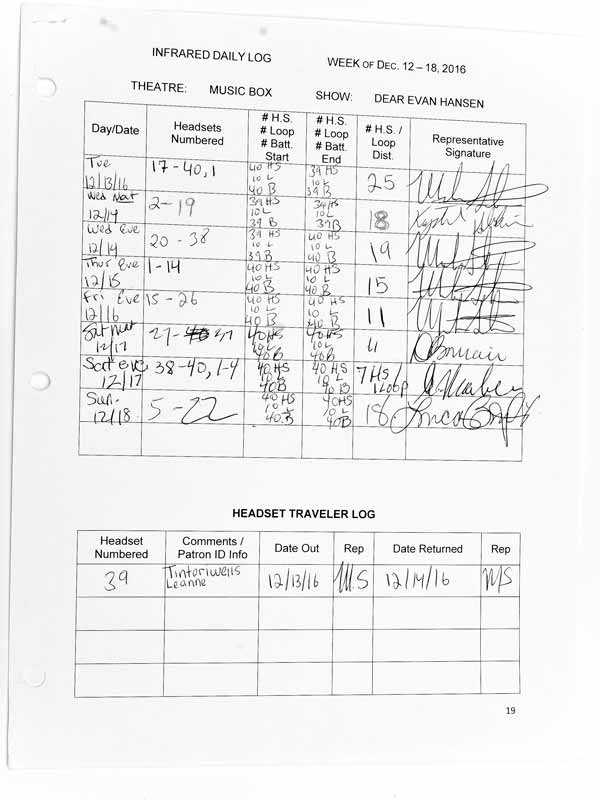 INFRARED DAILY LOG
WEEK OF DEC. 12 – 18, 2016
THEATRE: MUSIC BOX SHOW: DEAR EVAN HANSEN
Day/Date Headsets Numbered # H.S. # Loop # Batt. Start # H.S. # Loop # Batt. End # H.S. / Loop Dist. Representative Signature
Tue 12/13/16 17-40, 1 40 HS 10 L 40 B 39 HS 10 L 40 B 25
Wed Mat 12/14 2-19 39 HS 10 L 39 B 39 HS 10 L 39 B 18
Wed Eve 12/14 20-38 39 HS 10 L 39 B 40 HS 10 L 40 B 19
Thur Eve 12/15 1-14 40 HS 10 L 40 B 40 HS 10 L 40 B 15
Fri Eve 12/16 15-26 40 HS 10 L 40 B 40 HS 10 L 40 B 11
Sat Mat 12/17 27- 37 40 HS 10 L 40 B 40 HS 10 L 40 B 11
Sat eve 12/17 38-40, 1-4 40 HS 10 L 40 B 40 HS 10 L 40 B 7 HS 1 Loop
Sun. 12/18 5-22 40 HS 10 L 40 B 40 HS 10 L 40 B 18
HEADSET TRAVELER LOG
Headset Numbered Comments / Patron ID Info Date Out Rep Date Returned Rep
39 Leanne 12/13/16 MS 12/14/16 MS
19